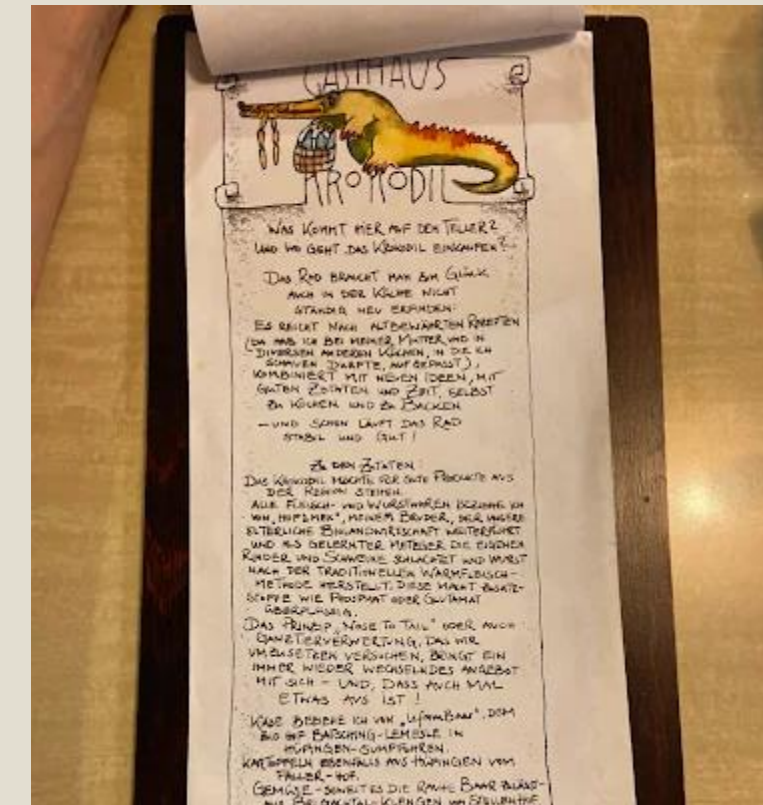 GASTHAUS
KROKODIL
WAS KOMMT HIER AUF DEN TELLER?
UND WO GEHT DAS KROKODIL EINKAUFEN?
DAS RAD BRAUCHT MAN ZUM GLÜCK
AUCH IN DER KÜCHE NICHT
STÄNDIG NEU ERFINDEN.
ES REICHT NACH ALTBEWÄHRTEN REZEPTEN
(DA HAB ICH BEI MEINER MUTTER UND IN
DIVERSEN ANDEREN KÜCHEN, IN DIE ICH
SCHAUEN DURFTE, AUFGEPASST),
KOMBINIERT MIT NEUEN IDEEN, MIT
GUTEN ZUTATEN UND ZEIT, SELBST
ZU KOCHEN UND ZU BACKEN
– UND SCHON LÄUFT DAS RAD
STABIL UND GUT!
ZU DEN ZUTATEN
DAS KROKODIL MÖCHTE FÜR GUTE PRODUKTE AUS
DER REGION STEHEN.
ALLE FLEISCH- UND WURSTWAREN BEZIEHE ICH
VON, MEINEM BRUDER, DER UNSERE
ELTERLICHE BIOLANDWIRTSCHAFT WEITERFÜHRT
UND ALS GELERNTER METZGER DIE EIGENEN
RINDER UND SCHWEINE SCHLACHTET UND WURST
NACH DER TRADITIONELLEN WARMFLEISCH-
METHODE HERSTELLT. DIESE MACHT ZUSATZ-
STOFFE WIE PHOSPHAT ODER GLUTAMAT
ÜBERFLÜSSIG.
DAS PRINZIP „NOSE TO TAIL" ODER AUCH
GANZTIERVERWERTUNG, DAS WIR
UMZUSETZEN VERSUCHEN, BRINGT EIN
IMMER WIEDER WECHSELNDES ANGEBOT
MIT SICH – UND, DASS AUCH MAL
ETWAS AUS IST!
KÄSE BEZIEHE ICH VON, DEM
BIO HOF BATSCHING-LEMESLE IN
HÜFINGEN-SUMPFOHREN.
KARTOFFELN EBENFALLS AUS HÜFINGEN VOM
FALLER-HOF.
GEMÜSE – SOWEIT ES DIE RAUHE BAAR ZULÄSST –
AUS KLENGEN VOM